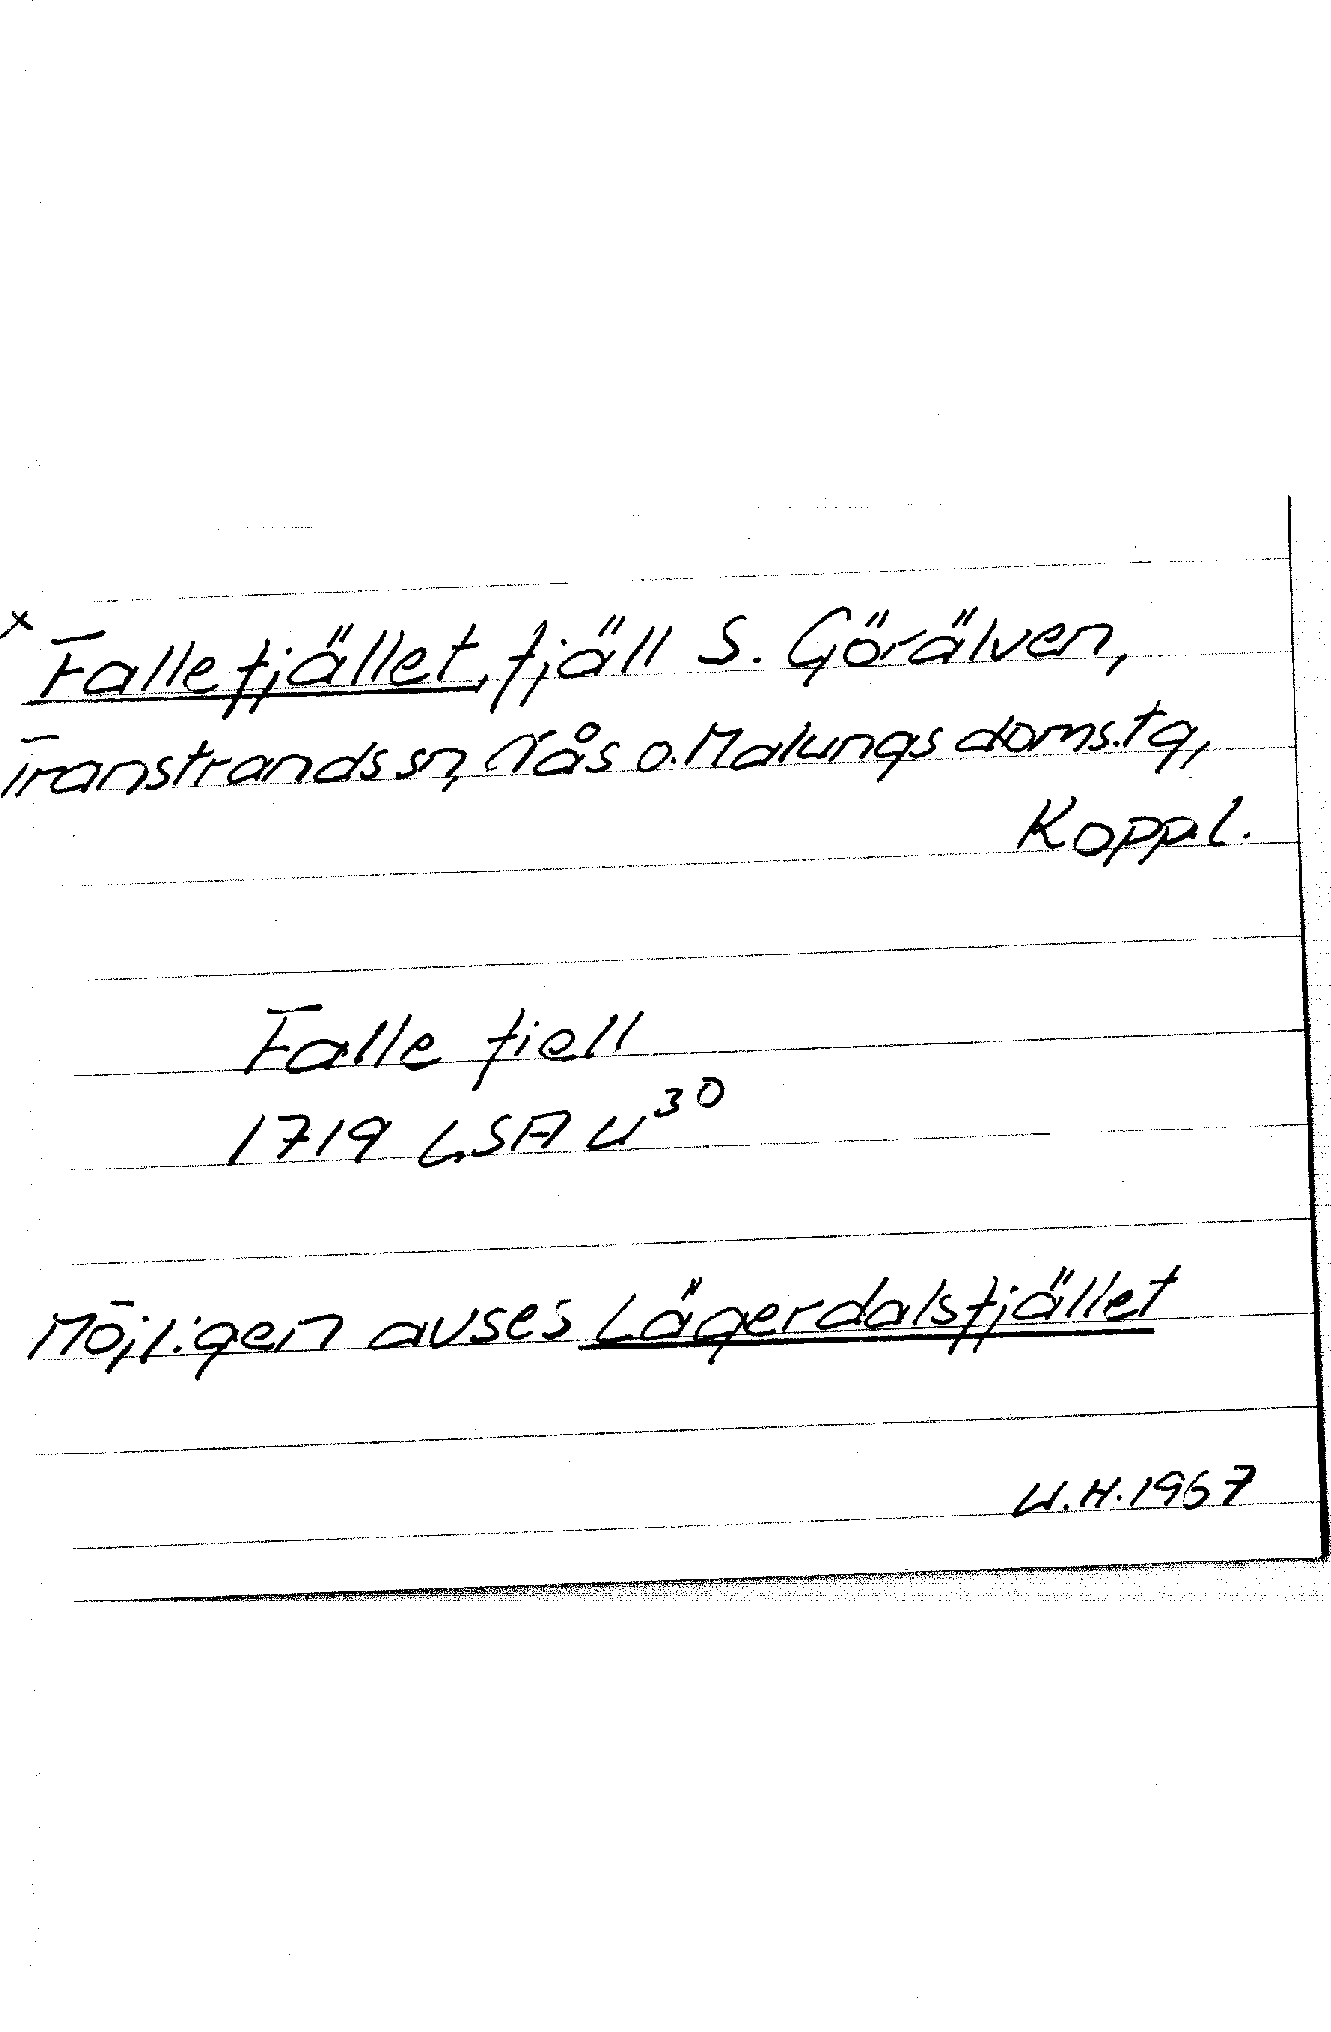 x Fallefjället, fjäll S. Görälven,
Transtrands sn, Nås o. Malungs doms.tg,
Kopp.l.
Falle fiell
1719 LSA U30
Möjligen avses Lägerdalsfjället
U.H. 1967